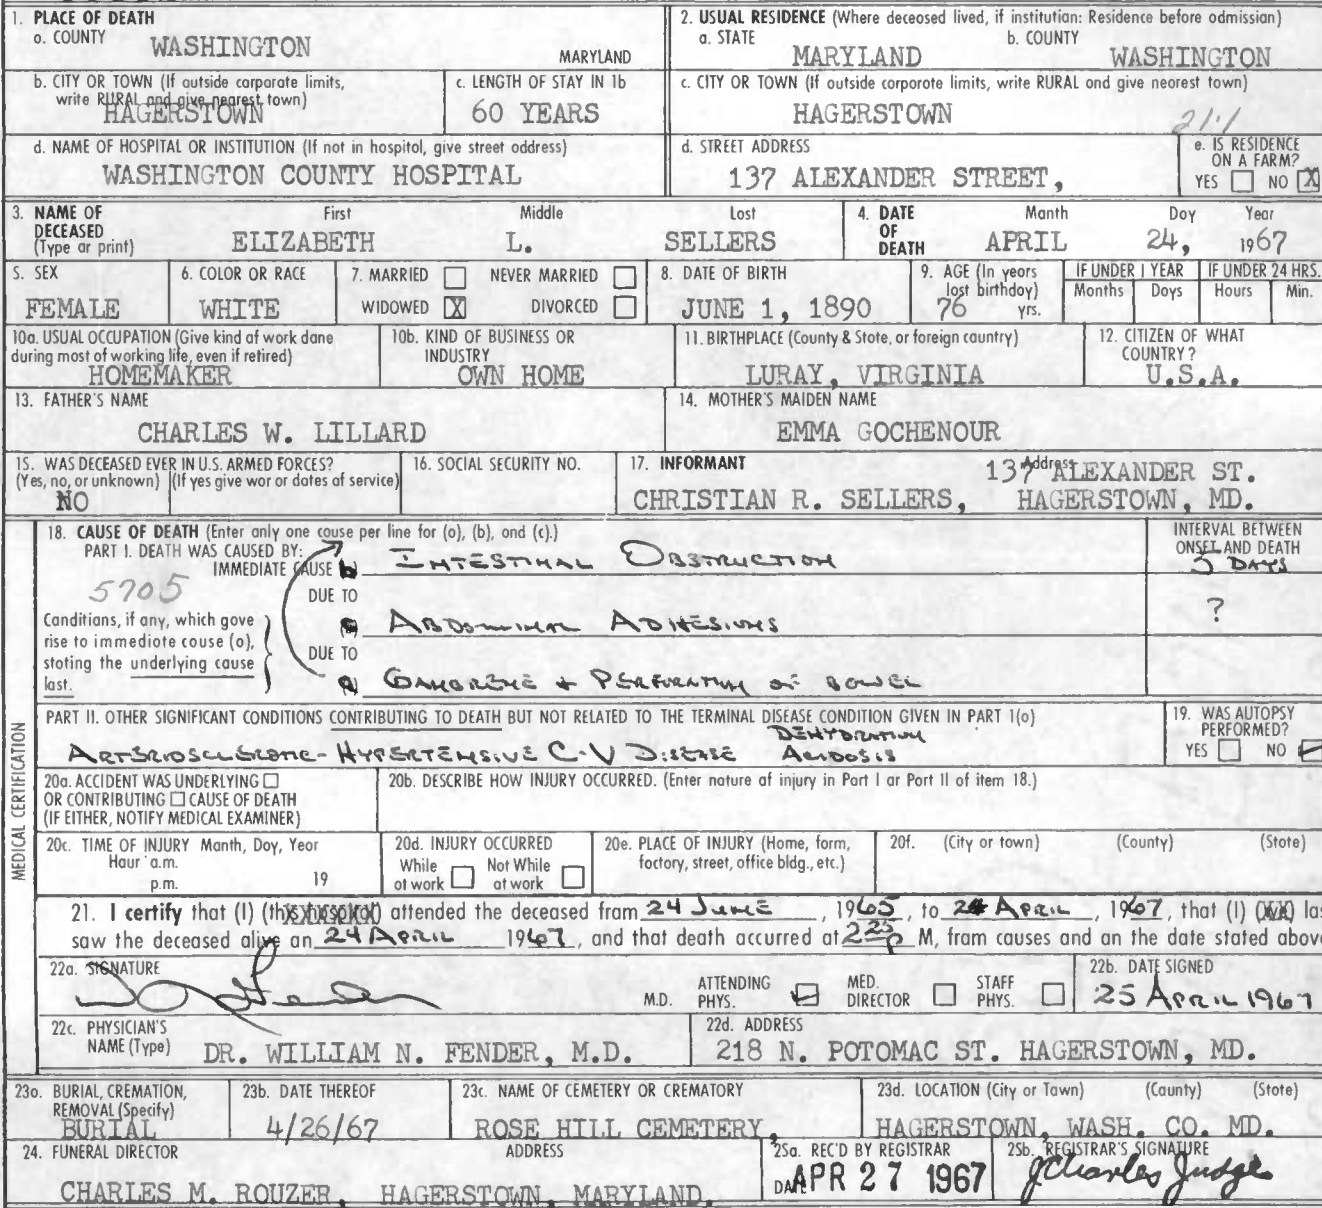 1. PLACE OF DEATH
a. COUNTY WASHINGTON MARYLAND
2. USUAL RESIDENCE (Where deceased lived, if institution: Residence before admission)
a. STATE MARYLAND b. COUNTY WASHINGTON
b. CITY OR TOWN (If outside corporate limits, write RURAL and give nearest town)
HAGERSTOWN
c. LENGTH OF STAY IN 1b
60 YEARS
c. CITY OR TOWN (If outside corporate limits, write RURAL and give nearest town)
HAGERSTOWN
d. NAME OF HOSPITAL OR INSTITUTION (If not in hospital, give street address)
WASHINGTON COUNTY HOSPITAL
d. STREET ADDRESS
137 ALEXANDER STREET,
e. IS RESIDENCE ON A FARM?
YES NO X
3. NAME OF DECEASED (Type or print)
First Middle Last
ELIZABETH L. SELLERS
4. DATE OF DEATH
Month Day Year
APRIL 24, 1967
5. SEX
FEMALE
6. COLOR OR RACE
WHITE
7. MARRIED NEVER MARRIED
WIDOWED X DIVORCED
8. DATE OF BIRTH
JUNE 1, 1890
9. AGE (In years last birthday)
76 yrs.
IF UNDER 1 YEAR
Months Days
IF UNDER 24 HRS.
Hours Min.
10a. USUAL OCCUPATION (Give kind of work done during most of working life, even if retired)
HOMEMAKER
10b. KIND OF BUSINESS OR INDUSTRY
OWN HOME
11. BIRTHPLACE (County & State, or foreign country)
LURAY, VIRGINIA
12. CITIZEN OF WHAT COUNTRY?
U.S.A.
13. FATHER'S NAME
CHARLES W. LILLARD
14. MOTHER'S MAIDEN NAME
EMMA GOCHENOUR
15. WAS DECEASED EVER IN U.S. ARMED FORCES?
(Yes, no, or unknown) (If yes give war or dates of service)
NO
16. SOCIAL SECURITY NO.
17. INFORMANT Address
137 ALEXANDER ST.
CHRISTIAN R. SELLERS, HAGERSTOWN, MD.
MEDICAL CERTIFICATION
18. CAUSE OF DEATH (Enter only one cause per line for (a), (b), and (c).)
PART I. DEATH WAS CAUSED BY:
IMMEDIATE CAUSE INTESTINAL OBSTRUCTION
INTERVAL BETWEEN ONSET AND DEATH
5 DAYS
5705
DUE TO
Conditions, if any, which gave rise to immediate cause (a), stating the underlying cause last.
ABDOMINAL ADHESIONS
?
DUE TO
GANGRENE + PERFORATION OF BOWEL
PART II. OTHER SIGNIFICANT CONDITIONS CONTRIBUTING TO DEATH BUT NOT RELATED TO THE TERMINAL DISEASE CONDITION GIVEN IN PART I(a)
DEHYDRATION
ARTERIOSCLEROTIC-HYPERTENSIVE C-V DISEASE ACIDOSIS
19. WAS AUTOPSY PERFORMED?
YES NO
20a. ACCIDENT WAS UNDERLYING
OR CONTRIBUTING CAUSE OF DEATH
(IF EITHER, NOTIFY MEDICAL EXAMINER)
20b. DESCRIBE HOW INJURY OCCURRED. (Enter nature of injury in Part I or Part II of item 18.)
20c. TIME OF INJURY Month, Day, Year
Hour a.m.
p.m. 19
20d. INJURY OCCURRED
While at work Not While at work
20e. PLACE OF INJURY (Home, farm, factory, street, office bldg., etc.)
20f. (City or town) (County) (State)
21. I certify that (I) (this hospital) attended the deceased from 24 JUNE, 1965, to 24 APRIL, 1967, that (I) (we) las
saw the deceased alive on 24 APRIL 1967, and that death occurred at 2 25 P M, from causes and on the date stated above
22a. SIGNATURE
M.D. ATTENDING PHYS. MED. DIRECTOR STAFF PHYS.
22b. DATE SIGNED
25 APRIL 1967
22c. PHYSICIAN'S NAME (Type)
DR. WILLIAM N. FENDER, M.D.
22d. ADDRESS
218 N. POTOMAC ST. HAGERSTOWN, MD.
23a. BURIAL, CREMATION, REMOVAL (Specify)
BURIAL
23b. DATE THEREOF
4/26/67
23c. NAME OF CEMETERY OR CREMATORY
ROSE HILL CEMETERY,
23d. LOCATION (City or Town) (County) (State)
HAGERSTOWN, WASH. CO. MD.
24. FUNERAL DIRECTOR ADDRESS
CHARLES M. ROUZER, HAGERSTOWN, MARYLAND.
25a. REC'D BY REGISTRAR
DATE APR 27 1967
25b. REGISTRAR'S SIGNATURE
J Charles Judge